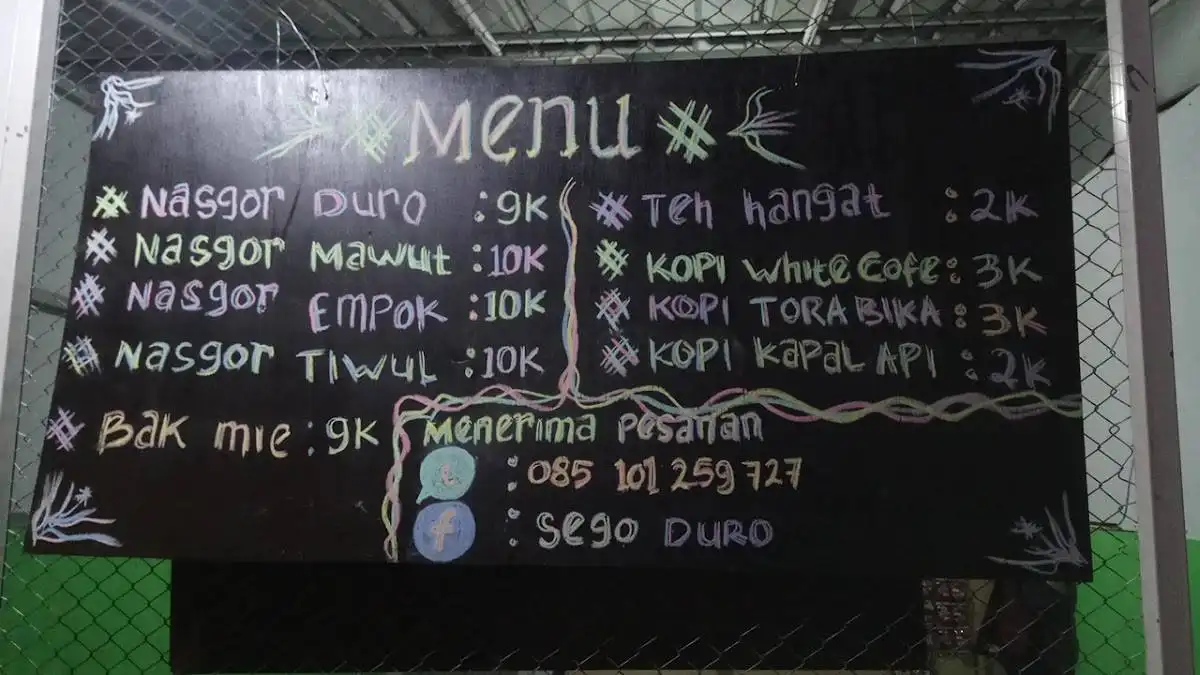 # Menu #
# Nasgor Duro : 9K
# Nasgor Mawut : 10K
# Nasgor EMPOK : 10K
# Nasgor TIWUL : 10K
# Bak mie : 9K
# Teh hangat : 2K
# KOPI white cofe : 3K
# KOPI TORABIKA : 3K
# KOPI Kapal API : 2K
Menerima Pesanan
: 085 101 259 727
f : Sego DURO